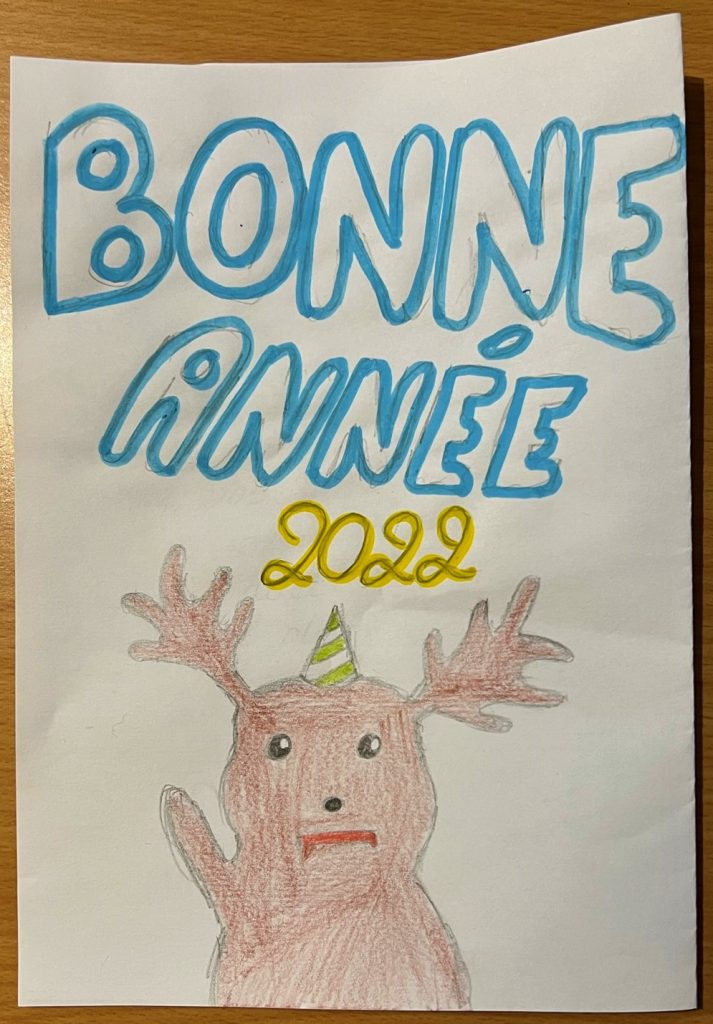 BONNE
ANNÉE
2022